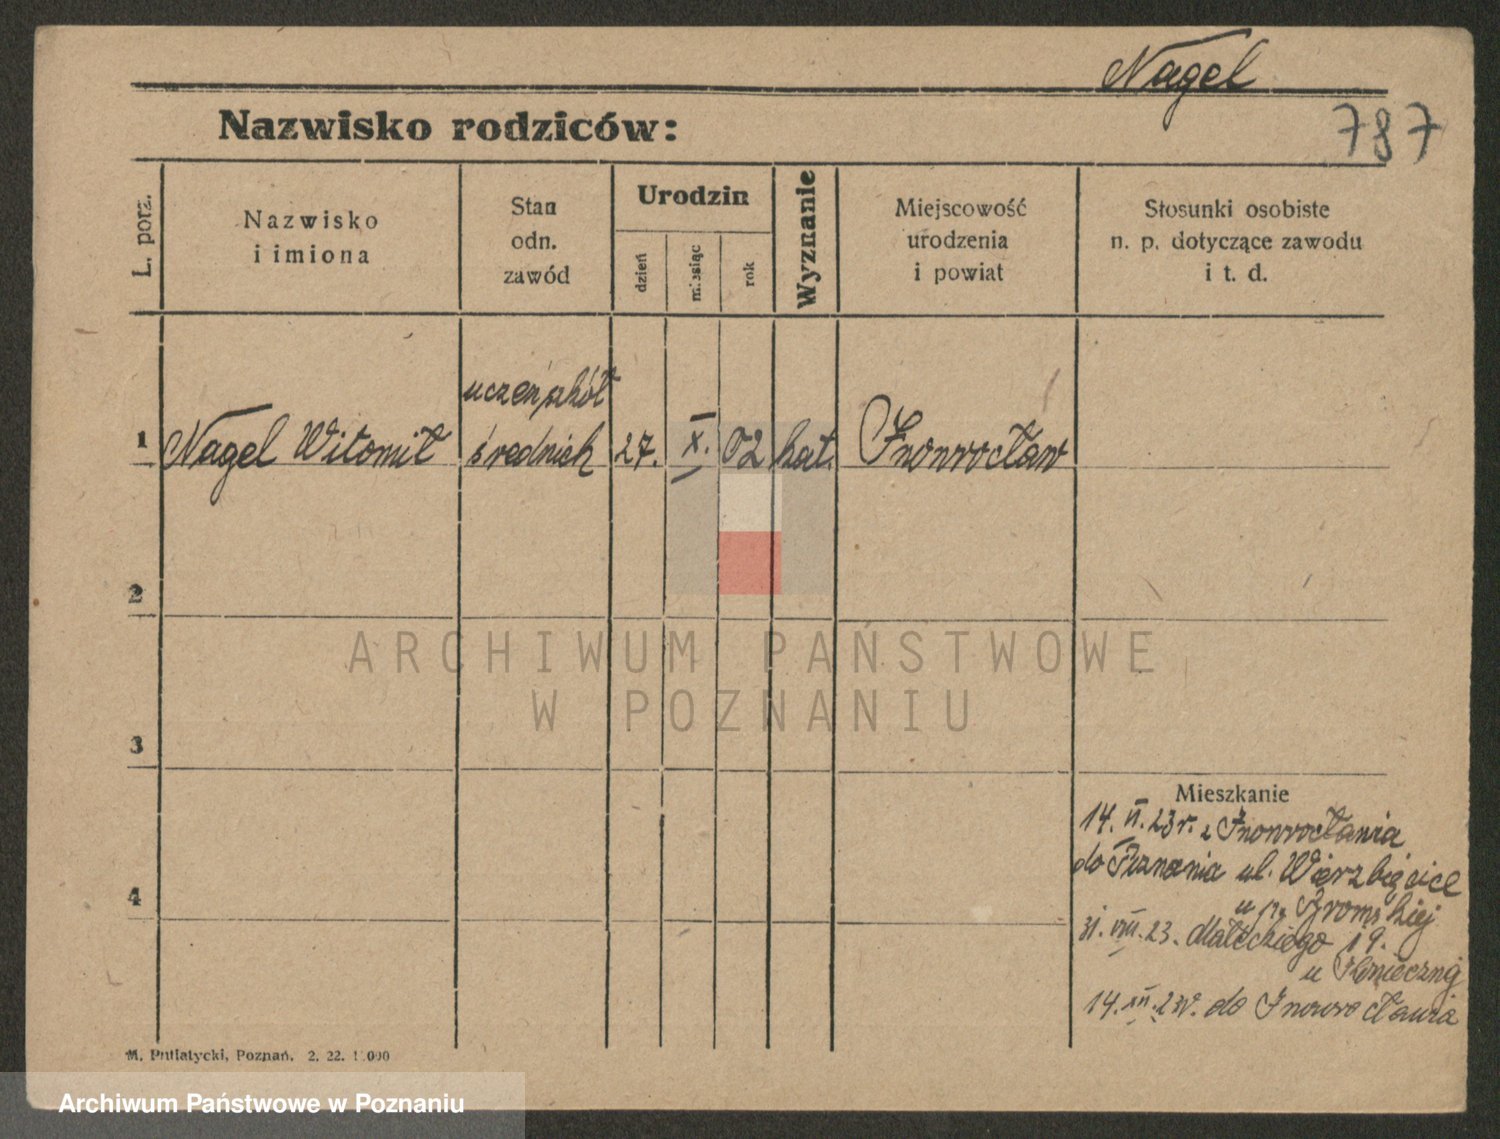 Nagel
787
Nazwisko rodziców:
L. porz.
Nazwisko
i imiona
Stan
odn.
zawód
Urodzin
dzień
miesiąc
rok
Wyznanie
Miejscowość
urodzenia
i powiat
Stosunki osobiste
n. p. dotyczące zawodu
i t. d.
uczeń szkół
1 Nagel Witomił średnich 27. X. 02 kat. Inowrocław
2
3
4
ARCHIWUM PAŃSTWOWE
W POZNANIU
Mieszkanie
14. VI. 23r. z Inowrocławia
do Poznania ul. Wierzbięcice
u
31. VIII. 23. Małeckiego 19.
u Koniecznej
14. XII. 23r. do Inowrocławia
M. Putiatycki, Poznań. 2. 22.
Archiwum Państwowe w Poznaniu